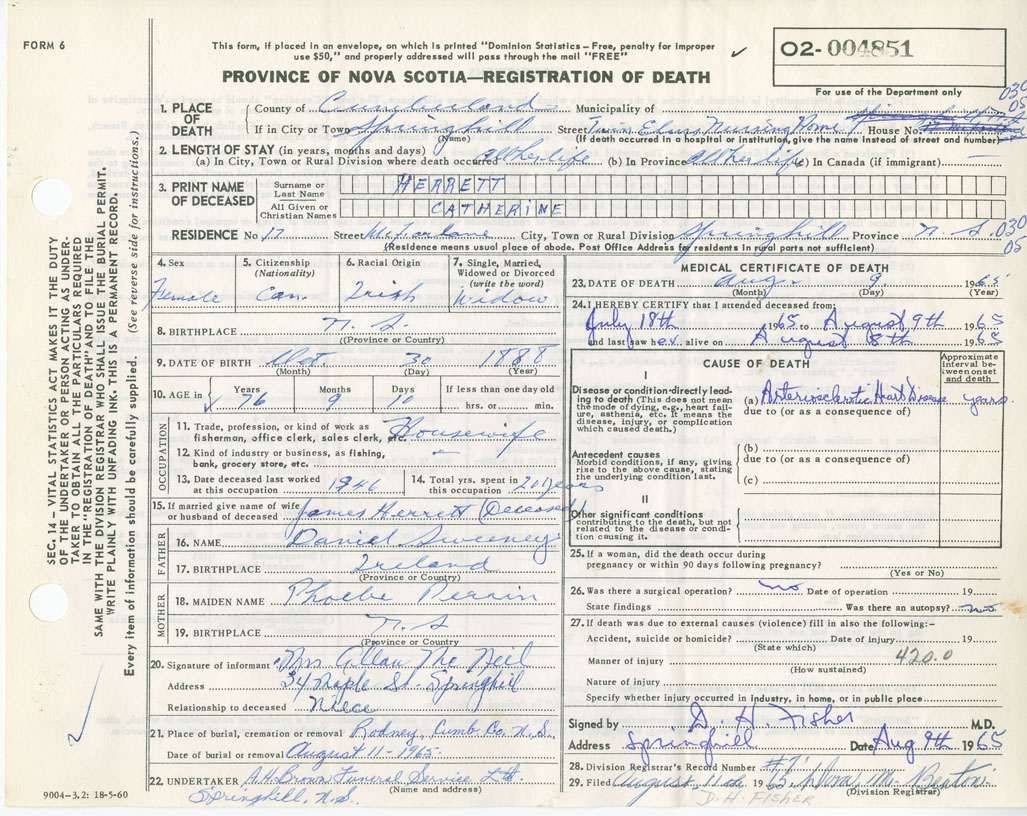 FORM 6
This form, if placed in an envelope, on which is printed "Dominion Statistics—Free, penalty for improper
use $50," and properly addressed will pass through the mail "FREE"
02-004851
For use of the Department only
PROVINCE OF NOVA SCOTIA—REGISTRATION OF DEATH
030
05
1. PLACE OF DEATH
County of Cumberland Municipality of
If in City or Town Springhill Street Twin Elms Nursing Home House No.
(Name) (If death occurred in a hospital or institution, give the name instead of street and number)
2. LENGTH OF STAY (in years, months and days)
(a) In City, Town or Rural Division where death occurred all her life (b) In Province all her life (c) In Canada (if immigrant) —
3. PRINT NAME OF DECEASED
Surname or Last Name HERRETT
All Given or Christian Names CATHERINE
RESIDENCE No. 17 Street McFarlane City, Town or Rural Division Springhill Province N.S. 030
05
(Residence means usual place of abode. Post Office Address for residents in rural parts not sufficient)
4. Sex
Female
5. Citizenship (Nationality)
Can.
6. Racial Origin
Irish
7. Single, Married, Widowed or Divorced (write the word)
Widow
8. BIRTHPLACE N.S.
(Province or Country)
9. DATE OF BIRTH Oct. 30 1888
(Month) (Day) (Year)
10. AGE in Years 76 Months 9 Days 10 If less than one day old
hrs. or min.
OCCUPATION
11. Trade, profession, or kind of work as
fisherman, office clerk, sales clerk, etc. Housewife
12. Kind of industry or business, as fishing,
bank, grocery store, etc. —
13. Date deceased last worked
at this occupation 1946
14. Total yrs. spent in
this occupation 20 years
15. If married give name of wife
or husband of deceased James Herrett (Deceased)
FATHER
16. NAME Daniel Sweeney
17. BIRTHPLACE Ireland
(Province or Country)
MOTHER
18. MAIDEN NAME Phoebe Perrin
19. BIRTHPLACE N.S
(Province or Country)
20. Signature of informant Mrs Allan Mc Neil
Address 34 Maple St. Springhill
Relationship to deceased Niece
21. Place of burial, cremation or removal Rodney, Cumb Co. N.S.
Date of burial or removal August 11-1965
22. UNDERTAKER A.H. Brown Funeral Service Ltd.
(Name and address)
Springhill, N.S.
9004-3.2: 18-5-60
MEDICAL CERTIFICATE OF DEATH
23. DATE OF DEATH Aug. 9 1965
(Month) (Day) (Year)
24. I HEREBY CERTIFY that I attended deceased from:
July 18th 1965 to August 9th 1965
and last saw her alive on August 8th 1965
CAUSE OF DEATH
Approximate interval between onset and death
I
Disease or condition directly leading to death (This does not mean the mode of dying, e.g., heart failure, asthenia, etc. It means the disease, injury, or complication which caused death.)
(a) Arteriosclerotic Heart Disease years.
due to (or as a consequence of)
Antecedent causes
Morbid conditions, if any, giving rise to the above cause, stating the underlying condition last.
(b)
due to (or as a consequence of)
(c)
II
Other significant conditions
contributing to the death, but not related to the disease or condition causing it.
25. If a woman, did the death occur during
pregnancy or within 90 days following pregnancy?
(Yes or No)
26. Was there a surgical operation? no Date of operation 19
State findings Was there an autopsy? no
27. If death was due to external causes (violence) fill in also the following:—
Accident, suicide or homicide? Date of injury 19
(State which)
Manner of injury 420.0
(How sustained)
Nature of injury
Specify whether injury occurred in industry, in home, or in public place
Signed by D. H. Fisher M.D.
Address Springhill Date Aug 9th 1965
28. Division Registrar's Record Number #71
29. Filed August 11th 1965
(Division Registrar)
D.H. FISHER
SEC. 14—VITAL STATISTICS ACT MAKES IT THE DUTY
OF THE UNDERTAKER OR PERSON ACTING AS UNDERTAKER
TO OBTAIN ALL THE PARTICULARS REQUIRED
IN THE "REGISTRATION OF DEATH" AND TO FILE THE
SAME WITH THE DIVISION REGISTRAR WHO SHALL ISSUE THE BURIAL PERMIT.
WRITE PLAINLY WITH UNFADING INK. THIS IS A PERMANENT RECORD.
Every item of information should be carefully supplied. (See reverse side for instructions.)